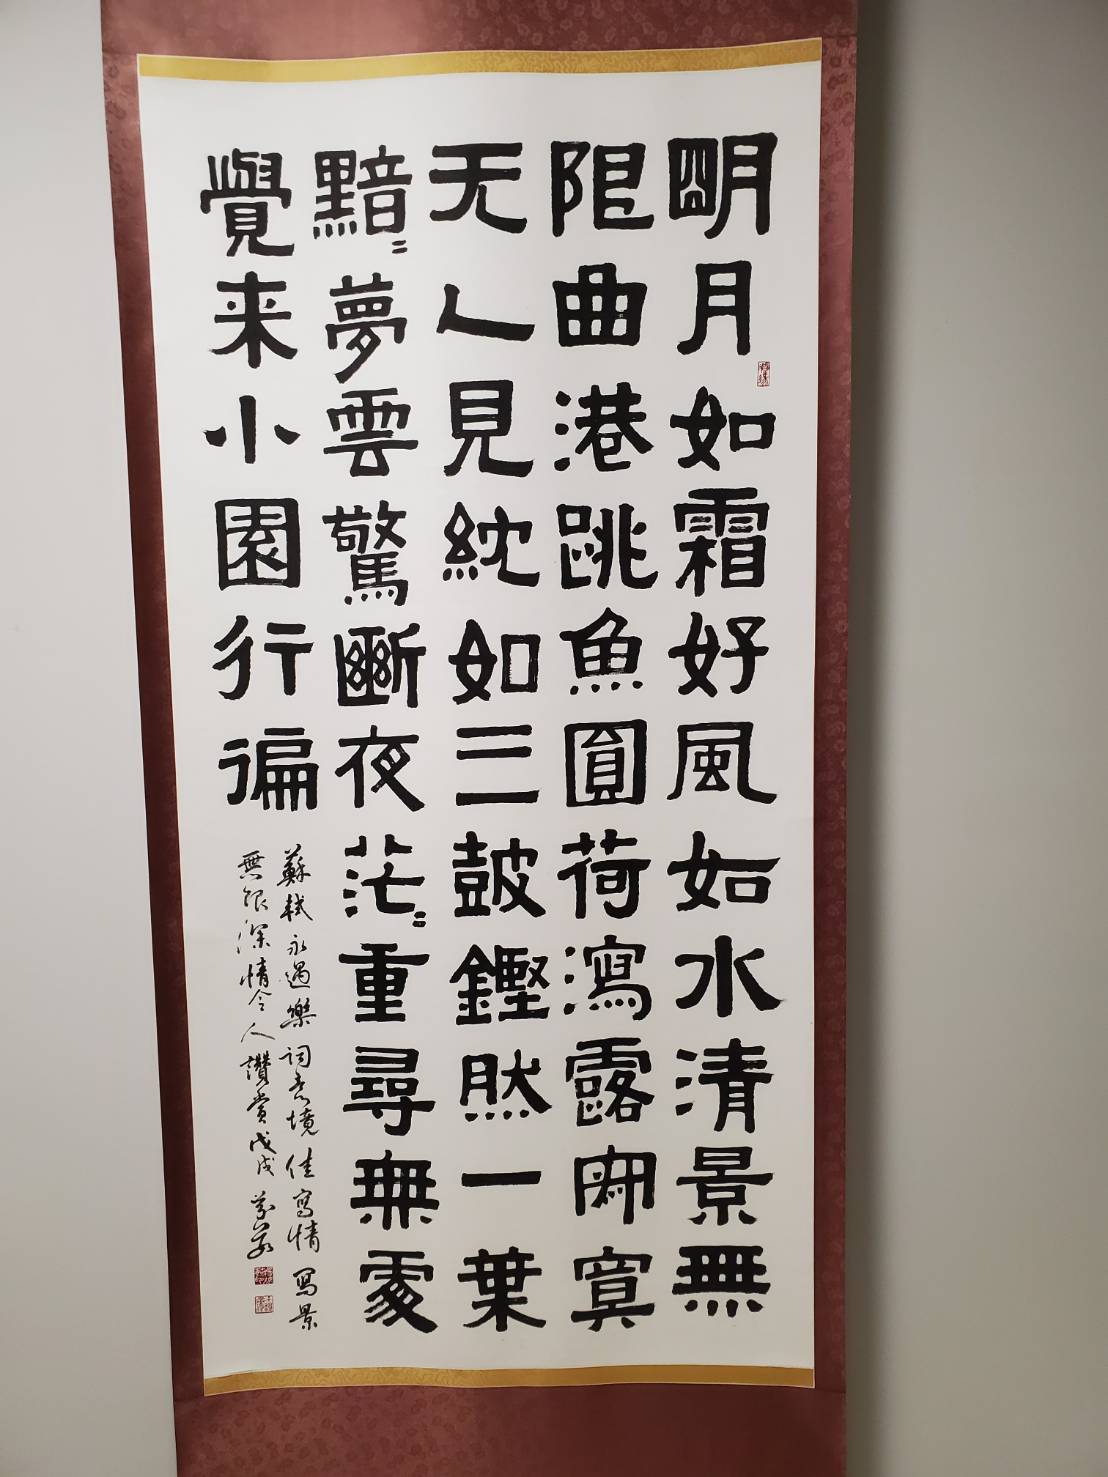 明月如霜好風如水清景無
限曲港跳魚圓荷瀉露寂寞
无人見紞如三鼓鏗然一葉
黯〻夢雲驚斷夜茫〻重尋無處
覺来小園行徧
蘇軾永遇樂詞意境佳寫情寫景
無限深情令人讚賞戊戌